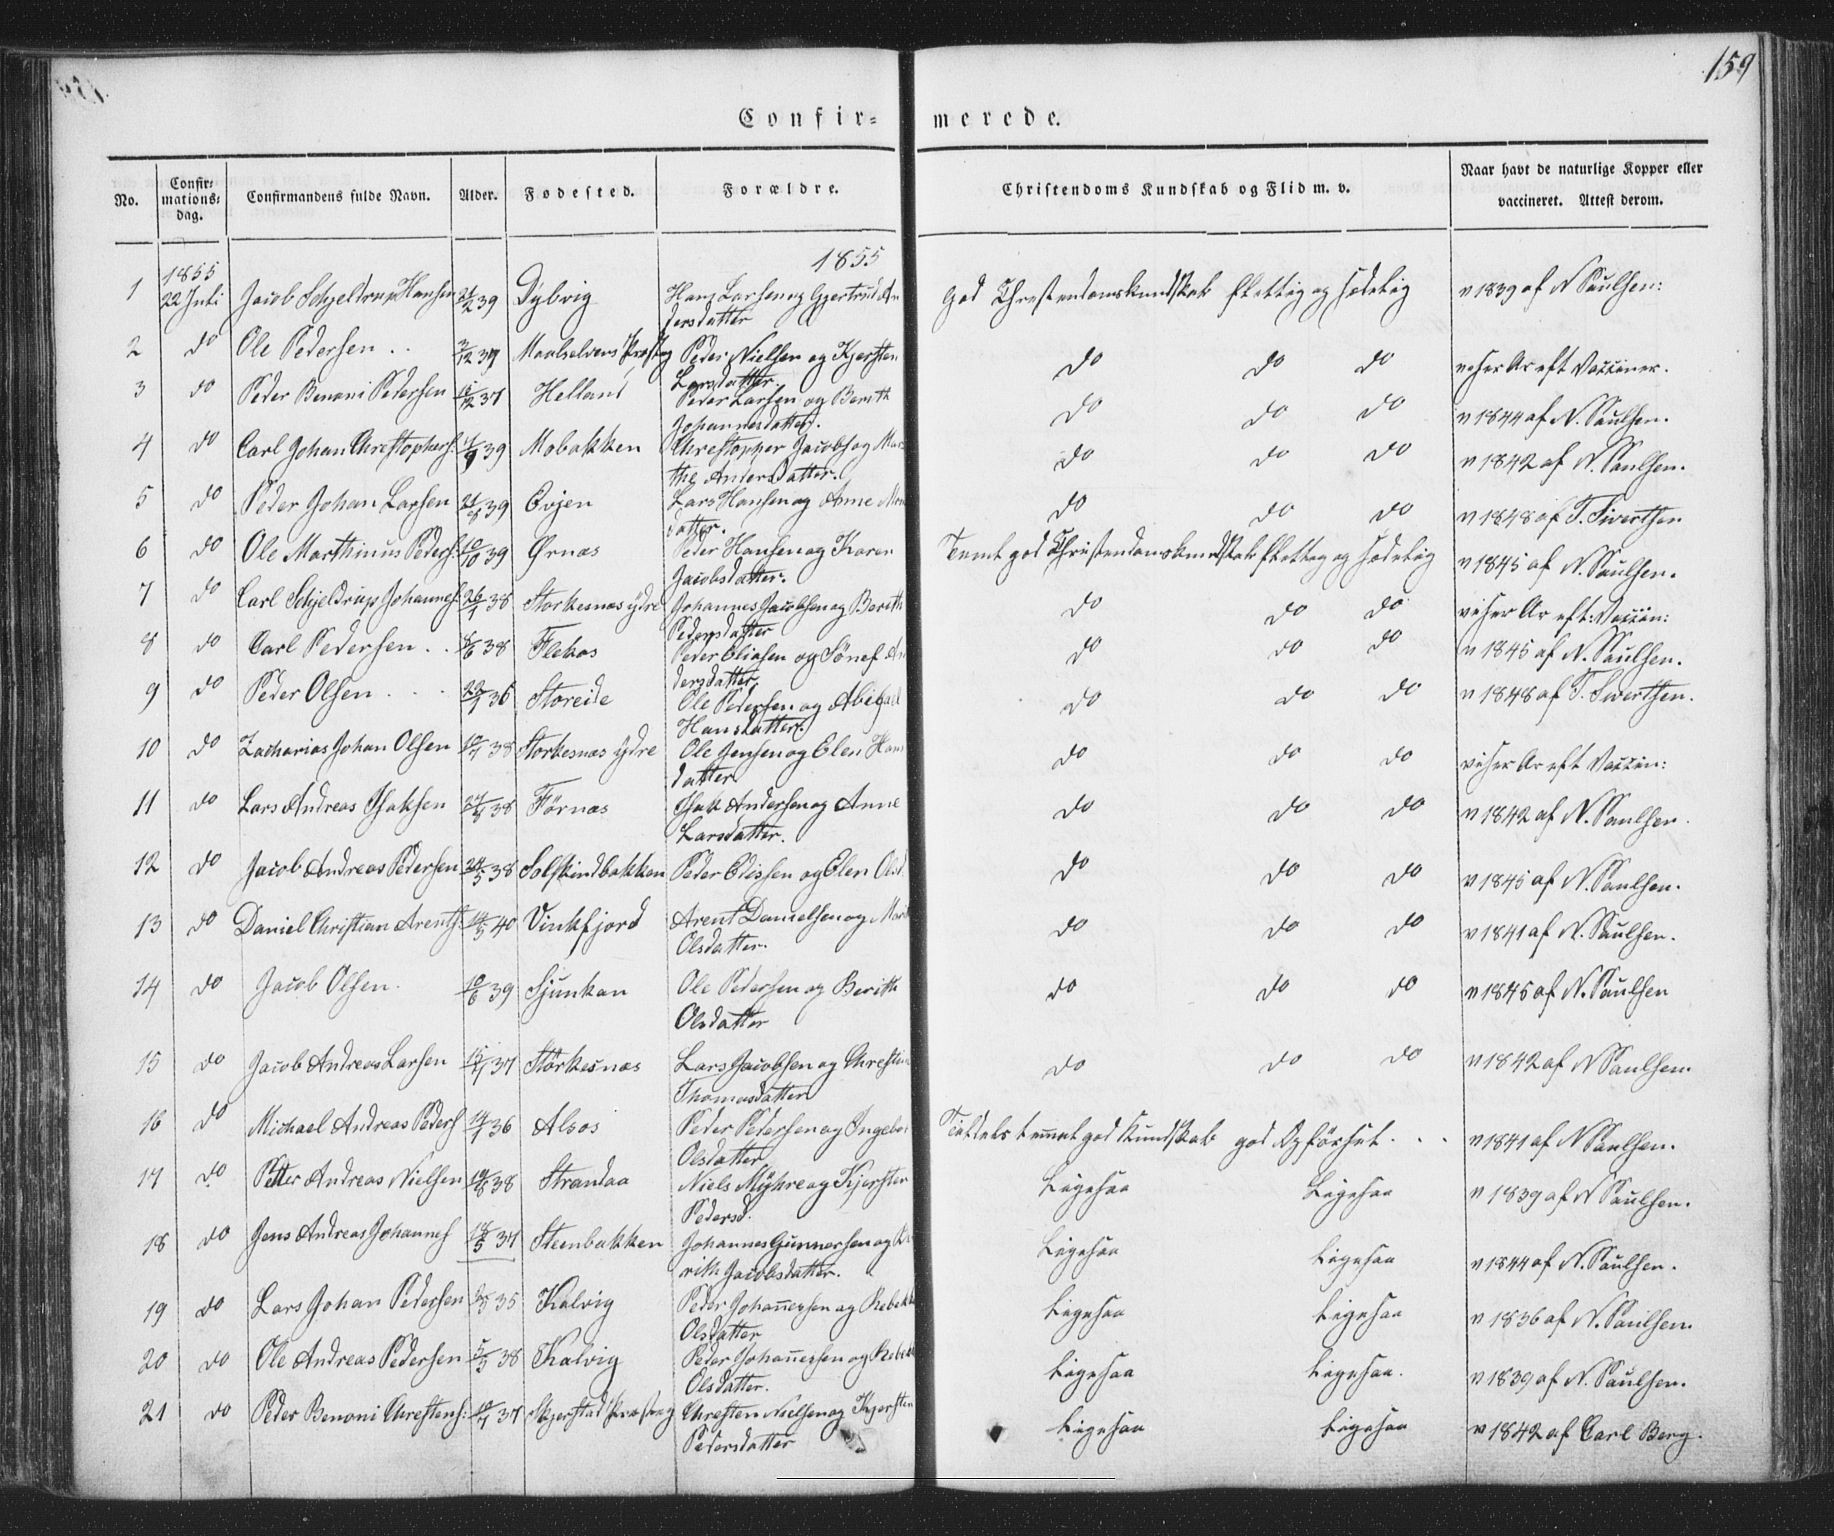 159
Confir= merede.
No. Confir= mations= dag. Confirmandens fulde Navn. Alder. Fødested. Forældre. Christendoms Kundskab og Flid m. v. Naar havt de naturlige Kopper eller vaccineret. Attest derom.
1855 1855
1 22 Juli Jacob Schjeldrup Hansen 39 Dybvig Hans Larsen og Gjertrud An god Christendomskundskab flittig og sædelig v 1839 af N Paulsen:
dersdatter
2 do Ole Pedersen . . 39 Maalselvens Præsteg Peder Nielsen og Kjersten do do do viser Ar eft Vacciner.
Larsdatter.
3 do Peder Benoni Pedersen 37 Helland Peder Larsen og Berith do do do v 1844 af N. Paulsen.
Johannesdatter.
4 do Carl Johan Christophers: 39 Mobakken Christopher Jacobs og Mar do do do v 1842 af N. Paulsen.
the Andersdatter.
5 do Peder Johan Larsen 39 Evjen Lars Hansen og Anne do do do v 1848 af T. Sivertsen
datter.
6 do Ole Marthinus Peders: 39 Ørnæs Peder Hansen og Karen Temt god Christendomskundskab flittig og sædelig v 1845 af N. Paulsen.
Jacobsdatter.
7 do Carl Schjeldrup Johannes: 26/1 38 Storkesnæs ydre Johannes Jacobsen og Berith do do do viser Ar eft: Vaccin:
Pedersdatter
8 do Carl Pedersen . . 8/6 38 Flekos Peder Eliasen og Sønef An do do do v 1845 af N. Paulsen.
dersdatter.
9 do Peder Olsen . . . 36 Storeide Ole Pedersen og Abegael do do do v 1848 af T. Sivertsen.
Hansdatter.
10 do Zacharias Johan Olsen 38 Storkesnæs ydre Ole Jensen og Elen Hans do do do viser Ar eft Vaccin:
datter
11 do Lars Andreas Isaksen 38 Førnæs Isak Andersen og Anne do do do v 1842 af N. Paulsen.
Larsdatter.
12 do Jacob Andreas Pedersen 24/5 38 Solskindbakken Peder Edissen og Elen Olsd. do do do v 1845 af N. Paulsen.
13 do Daniel Christian Arents: 40 Vinkfjord Arent Danielsen og do do do v 1841 af N. Paulsen.
Olsdatter.
14 do Jacob Olsen. 10/6 39 Sjunkan Ole Pedersen og Berith do do do v 1845 af N. Paulsen
Olsdatter
15 do Jacob Andreas Larsen 37 Størkesnæs Lars Jacobsen og Christin do do do v 1842 af N Paulsen.
Thomasdatter
16 do Michael Andreas Peders 36 Alsos Peder Pedersen og Ingebor Tildels temmet god Kundskab god Opførsel . . . v 1841 af N Paulsen.
Olsdatter
17 do Petter Andreas Nielsen 38 Strandaa Niels Myhre og Kjersten Ligesaa Ligesaa v 1839 af N Paulsen.
Pedersd.
18 do Jens Andreas Johannes 18/5 37 Steenbakken Johannes Gunnersen og Be Ligesaa Ligesaa v 1844 af N. Paulsen.
rith Jacobsdatter.
19 do Lars Johan Pedersen 35 Kalvig Peder Johannesen og Rebekka Ligesaa Ligesaa v 1836 af N. Paulsen.
Olsdatter
20 do Ole Andreas Pedersen 5/5 38 Kalvig Peder Johannesen og Rebekka Ligesaa Ligesaa. v 1839 af N. Paulsen.
Olsdatter.
21 do Peder Benoni Christens: 37 Skjerstad Præsteg Christen Nielsen og Kjersten Ligesaa Ligesaa v 1842 af Carl Berg.
Pedersdatter